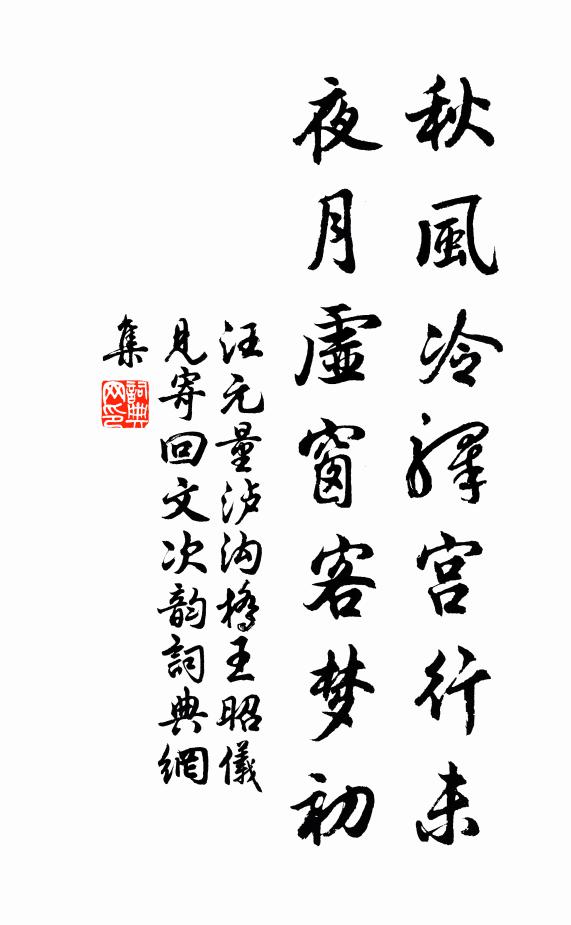 秋風冷驛宮行未
夜月虛窗客梦初
汪元量泸沟橋王昭儀
見寄回文次韵詞典網
集
詞典
网印